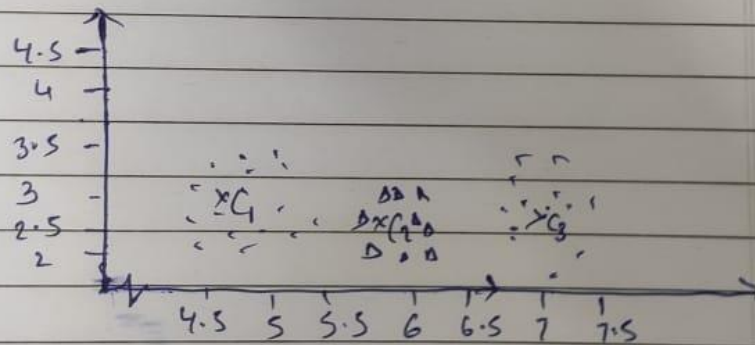 4.5
4
3.5
3
2.5
2
C1
C2
C3
4.5 5 5.5 6 6.5 7 7.5